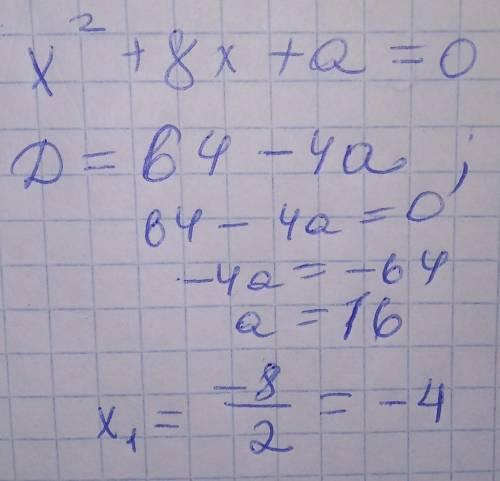 x² + 8x + a = 0
D = 64 - 4a ;
64 - 4a = 0
-4a = -64
a = 16
x₁ = -8/2 = -4